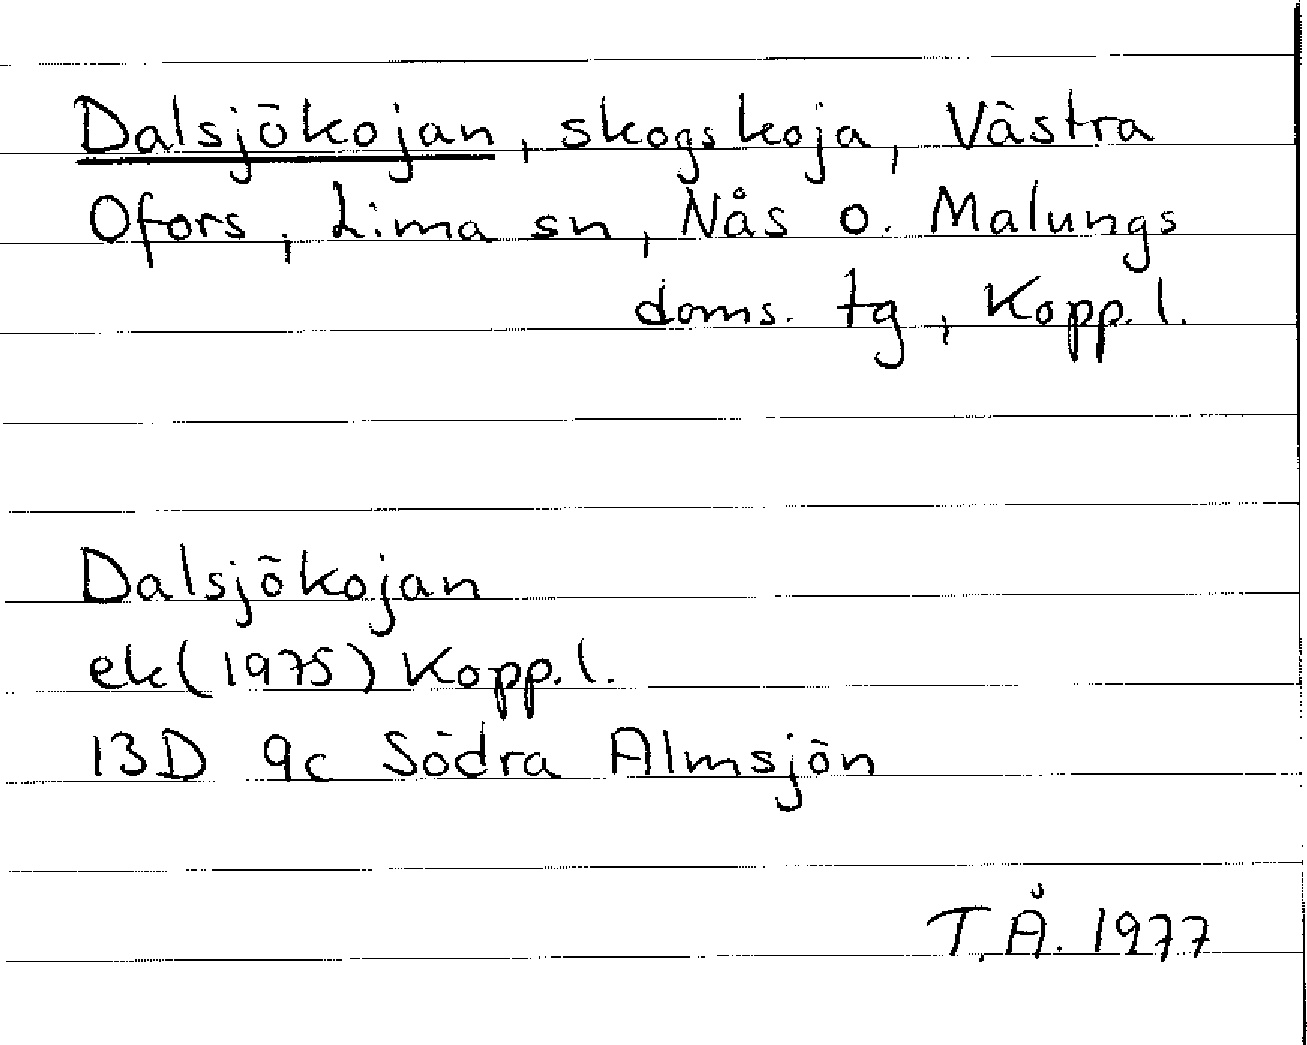 Dalsjökojan, skogskoja, Västra
Ofors, Lima sn, Nås o. Malungs
doms. tg, Kopp. l.
Dalsjökojan
ek (1975) Kopp. l.
13D 9c Södra Almsjön
T. Å. 1977